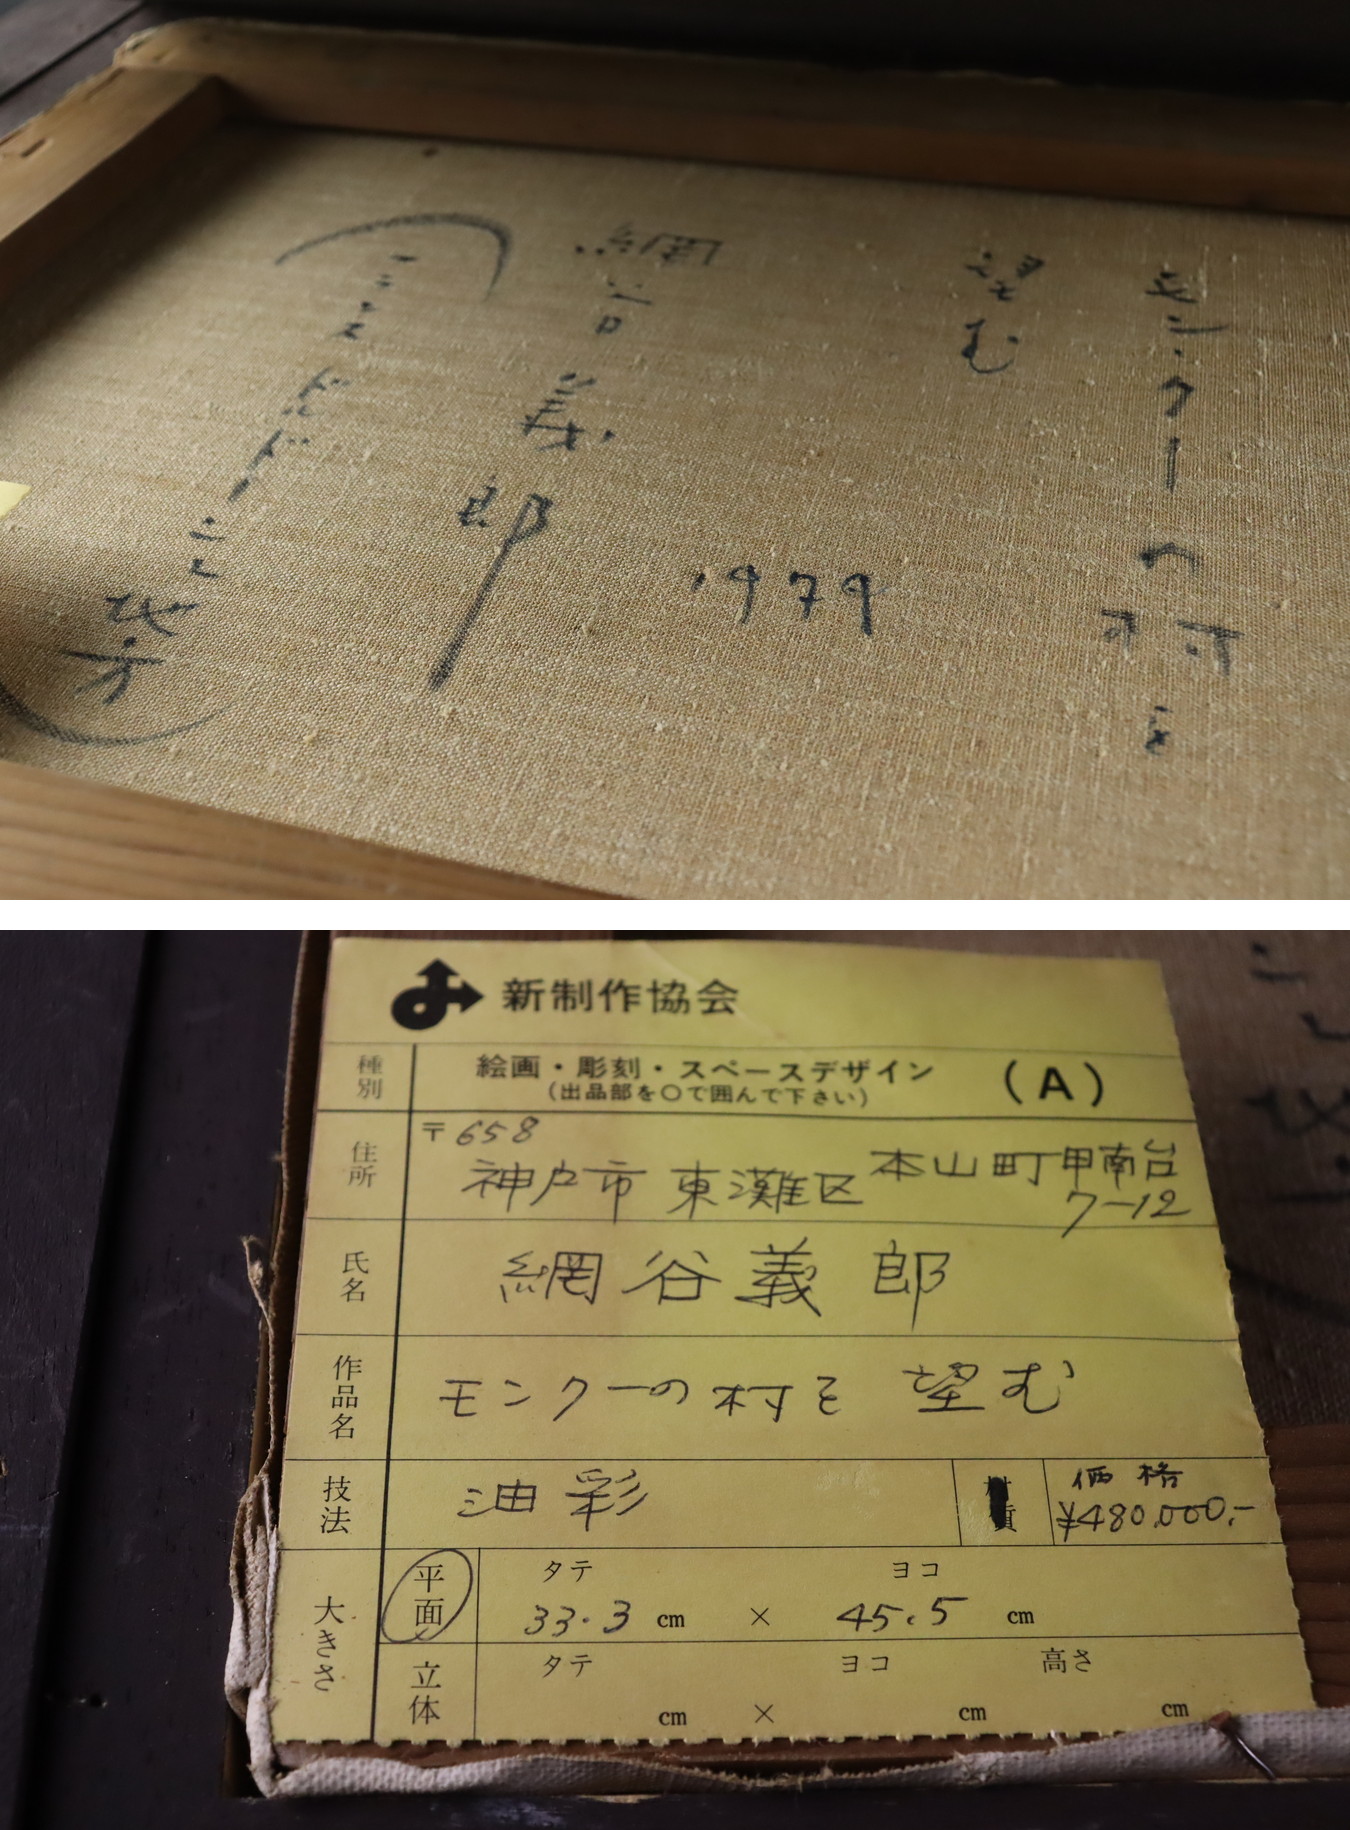 モンクーの村を
望む
1979
網谷義郎
フランスドルドーニュ地方
新制作協会
種別
絵画・彫刻・スペースデザイン (A)
(出品部を〇で囲んで下さい)
住所
〒658
神戸市 東灘区 本山町甲南台
7-12
氏名
網谷義郎
作品名
モンクーの村を望む
技法
油彩
材質
価格
¥480,000.-
大きさ
平面
タテ ヨコ
33.3 cm × 45.5 cm
立体
タテ ヨコ 高さ
cm × cm cm